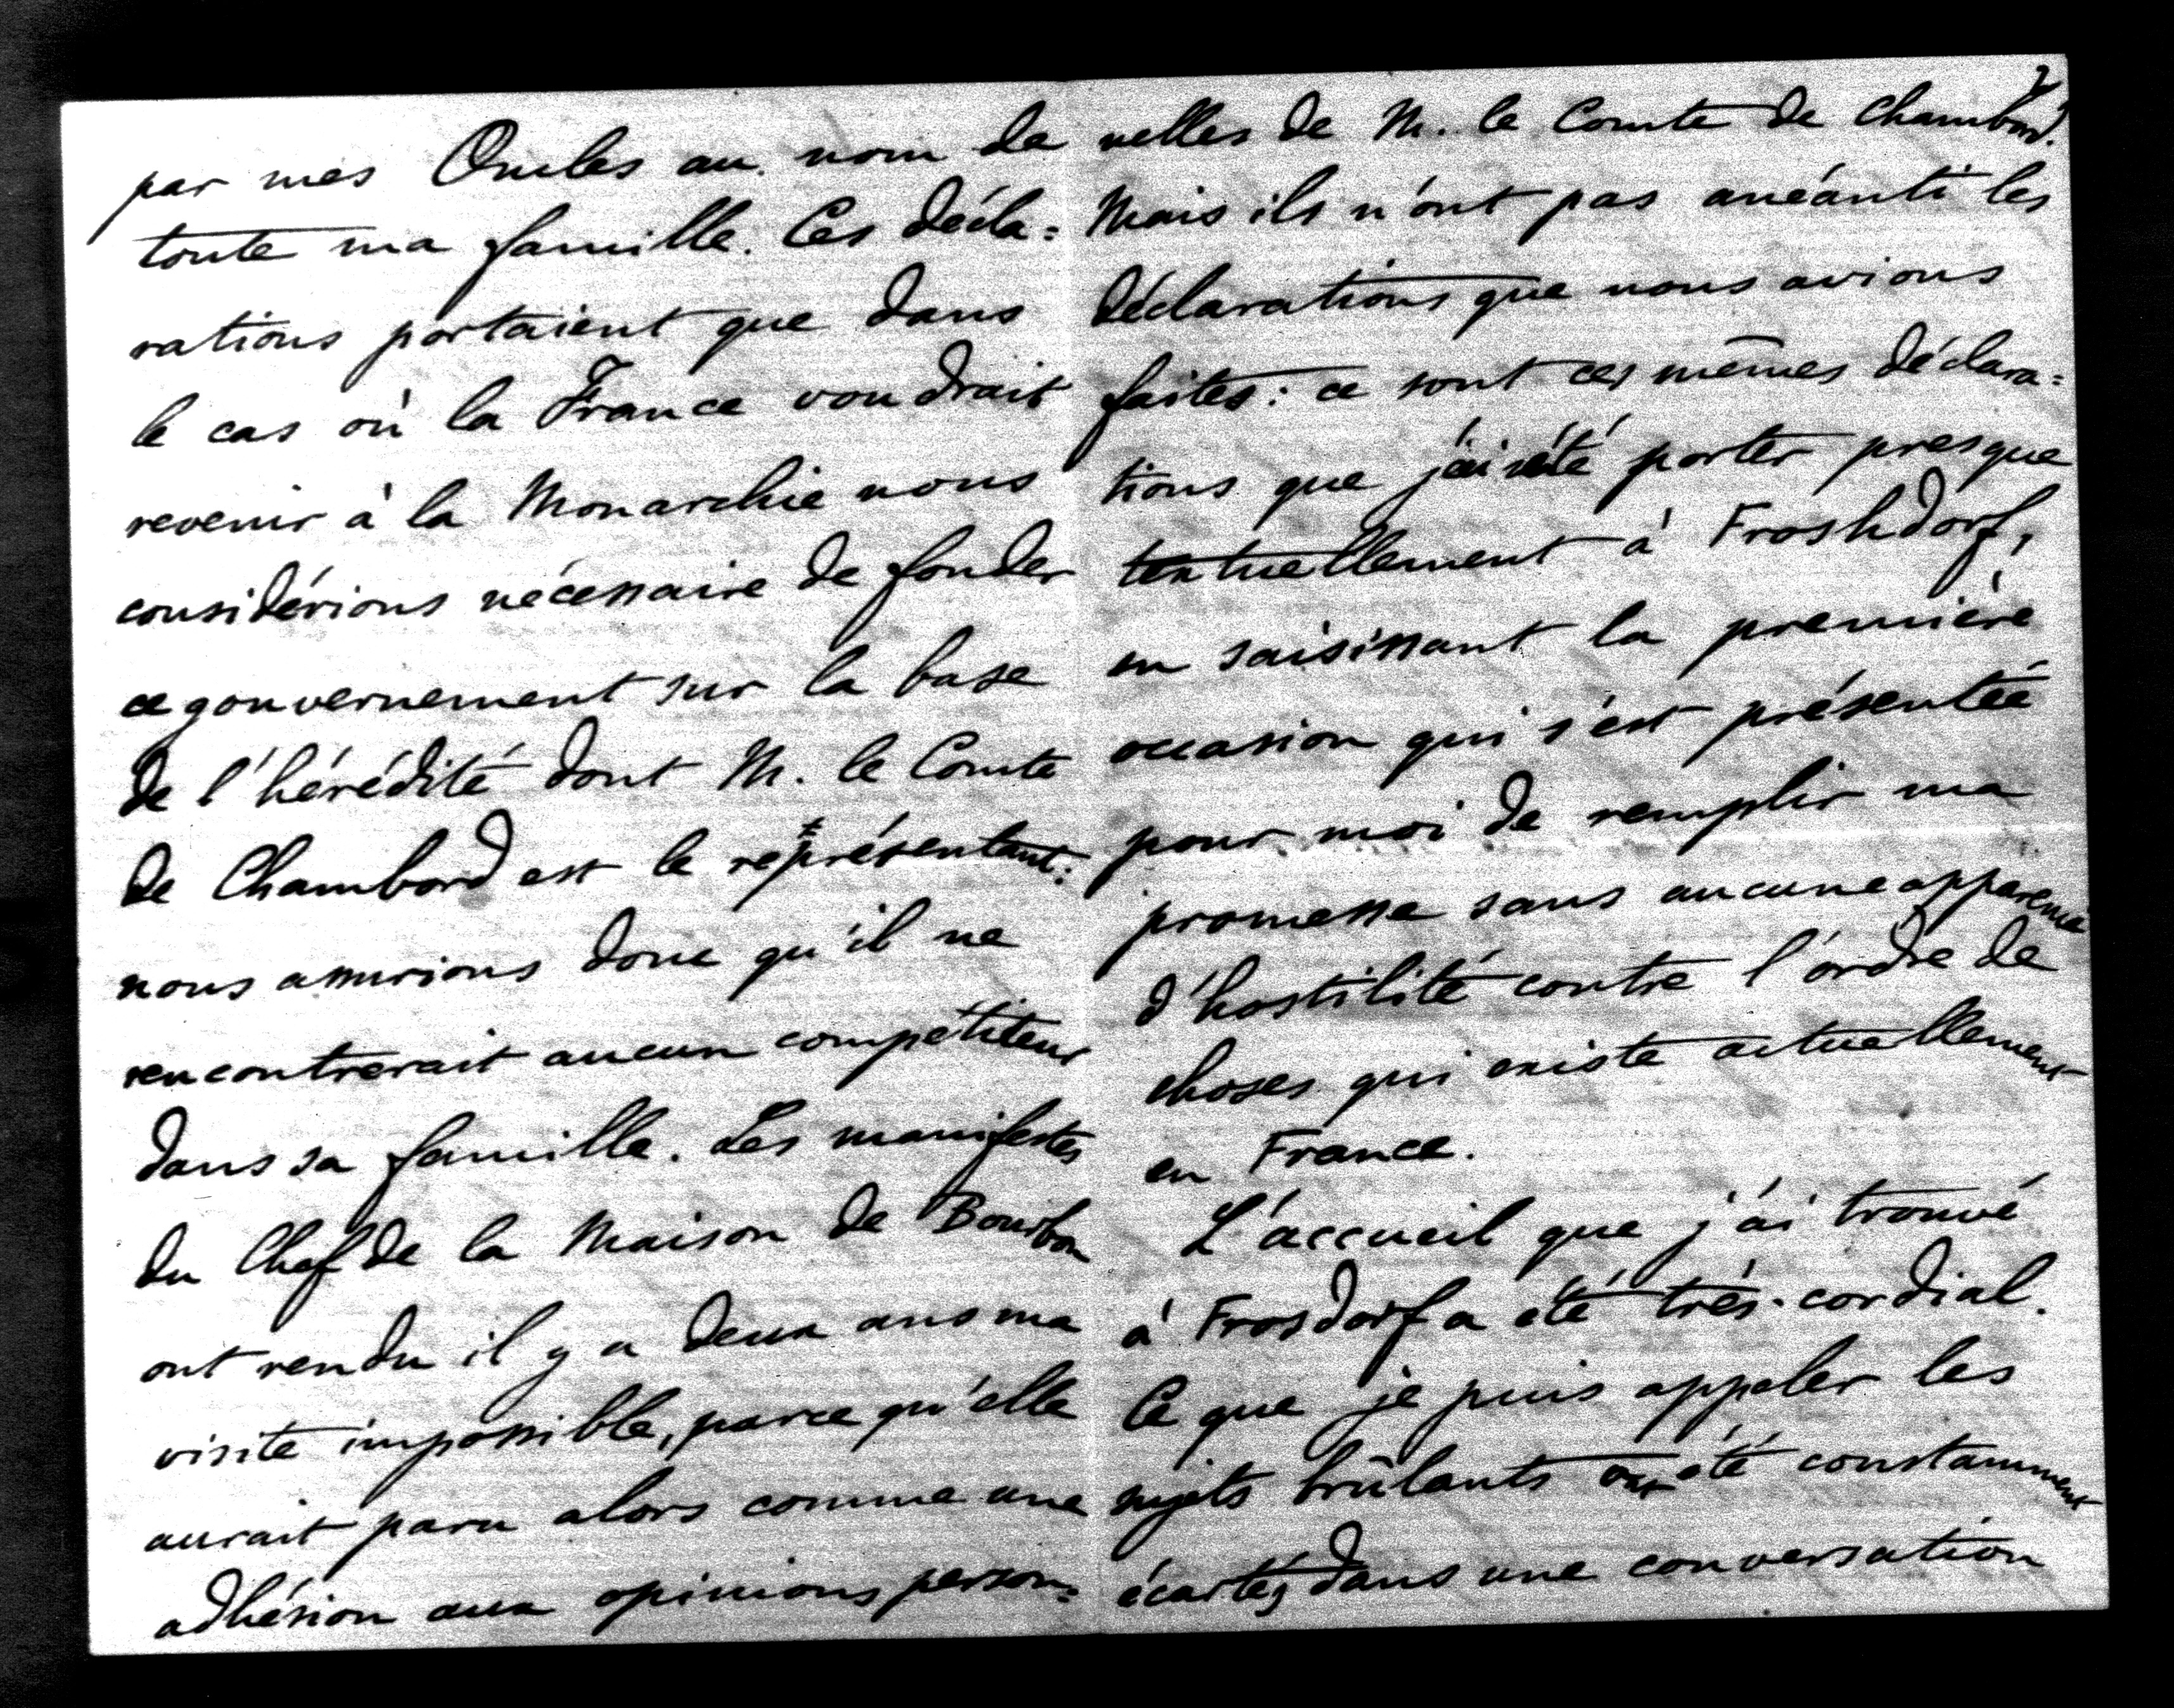 par mes Oncles au nom de
toute ma famille. Ces décla=
rations portaient que dans
le cas où la France voudrait
revenir à la Monarchie nous
considérions nécessaire de fonder
ce gouvernement sur la base
de l'hérédité dont M. le Comte
de Chambord est le représentant:
nous assurions donc qu'il ne
rencontrerait aucun compétiteur
dans sa famille. Les manifestes
du Chef de la Maison de Bourbon
ont rendu il y a deux ans ma
visite impossible, parce qu'elle
aurait paru alors comme une
adhésion aux opinions person=
2
nelles de M. le Comte de Chambord.
Mais ils n'ont pas anéanti les
déclarations que nous avions
faites: ce sont ces mêmes déclara=
tions que j'ai été porter presque
textuellement à Froshdorf,
en saisissant la première
occasion qui s'est présentée
pour moi de remplir ma
promesse sans aucune apparence
d'hostilité contre l'ordre de
choses qui existe actuellement
en France.
L'accueil que j'ai trouvé
à Frosdorf a été très-cordial.
Ce que je puis appeler les
sujets brûlants ont été constamment
écartés dans une conversation